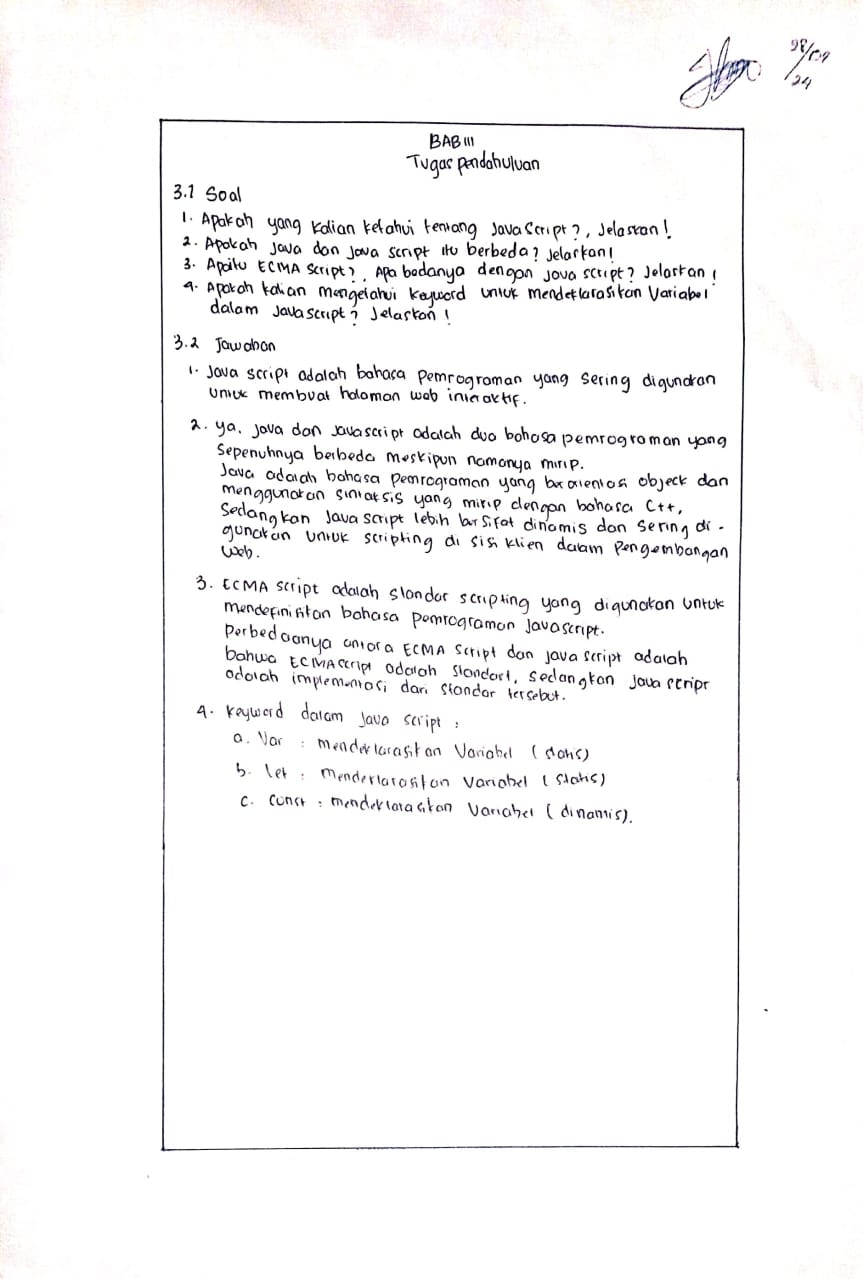 28/09
/24
BAB III
Tugas pendahuluan
3.1 Soal
1. Apakah yang kalian ketahui tentang Java Script?, Jelaskan!
2. Apakah Java dan Java script itu berbeda? Jelaskan!
3. Apaitu ECMA Script?, Apa bedanya dengan Java script? Jelaskan!
4. Apakah kalian mengetahui keyword untuk mendeklarasikan Variabel
dalam Javascript? Jelaskan!
3.2 Jawaban
1. Java script adalah bahasa pemrograman yang sering digunakan
untuk membuat halaman web interaktif.
2. ya, java dan Javascript adalah dua bahasa pemrograman yang
sepenuhnya berbeda meskipun namanya mirip.
Java adalah bahasa pemrograman yang berorientasi object dan
menggunakan sintaksis yang mirip dengan bahasa C++,
Sedangkan Java script lebih bersifat dinamis dan sering di-
gunakan untuk scripting di sisi klien dalam pengembangan
Web.
3. ECMA script adalah standar scripting yang digunakan untuk
mendefinisikan bahasa pemrograman Javascript.
perbedaanya antara ECMA script dan java script adalah
bahwa ECMAscript adalah standart, sedangkan java script
adalah implementasi dari standar tersebut.
4. keyword dalam java script :
a. Var : mendeklarasikan Variabel (statis)
b. let : mendeklarasikan Variabel (statis)
c. const : mendeklarasikan Variabel (dinamis).